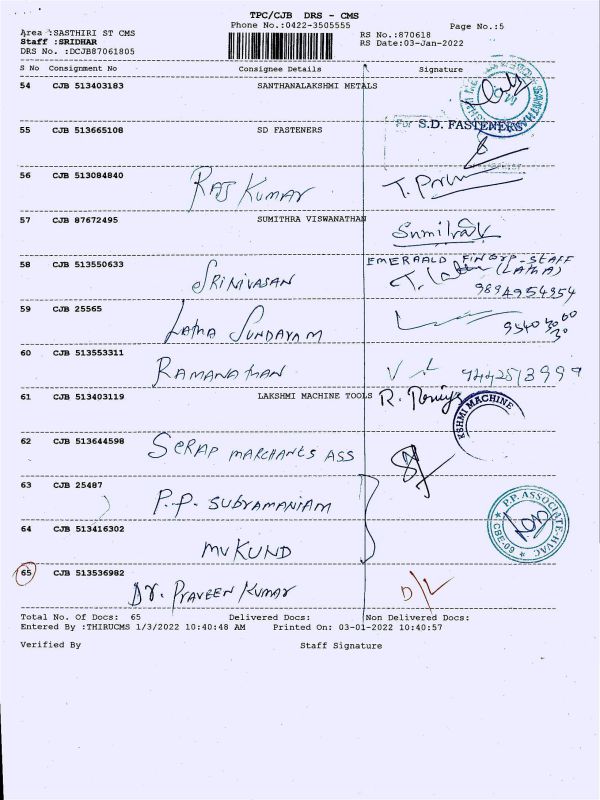 TPC/CJB DRS - CMS
Phone No.:0422-3505555
Page No.:5
Area :SASTHIRI ST CMS
Staff :SRIDHAR
DRS No. :DCJB87061805
RS No.:870618
RS Date:03-Jan-2022
S No Consignment No Consignee Details Signature
54 CJB 513403183 SANTHANALAKSHMI METALS
55 CJB 513665108 SD FASTENERS For S.D. FASTENERS
56 CJB 513084840 RAJ KUMAR
57 CJB 87672495 SUMITHRA VISWANATHAN
58 CJB 513550633 SRINIVASAN EMERAALD
(LATHA)
9894954354
59 CJB 25565 LATHA SUNDARAM
60 CJB 513553311 RAMANATHAN
61 CJB 513403119 LAKSHMI MACHINE TOOLS
KSHMI MACHINE
62 CJB 513644598 SCRAP MARCHANTS ASS
63 CJB 25487 P.P. SUBRAMANIAM
P.P. ASSOCIATE-HVAC
CBE-09
64 CJB 513416302 MUKUND
65 CJB 513536982 DR. PRAVEEN KUMAR D/L
Total No. Of Docs: 65 Delivered Docs: Non Delivered Docs:
Entered By :THIRUCMS 1/3/2022 10:40:48 AM Printed On: 03-01-2022 10:40:57
Verified By Staff Signature